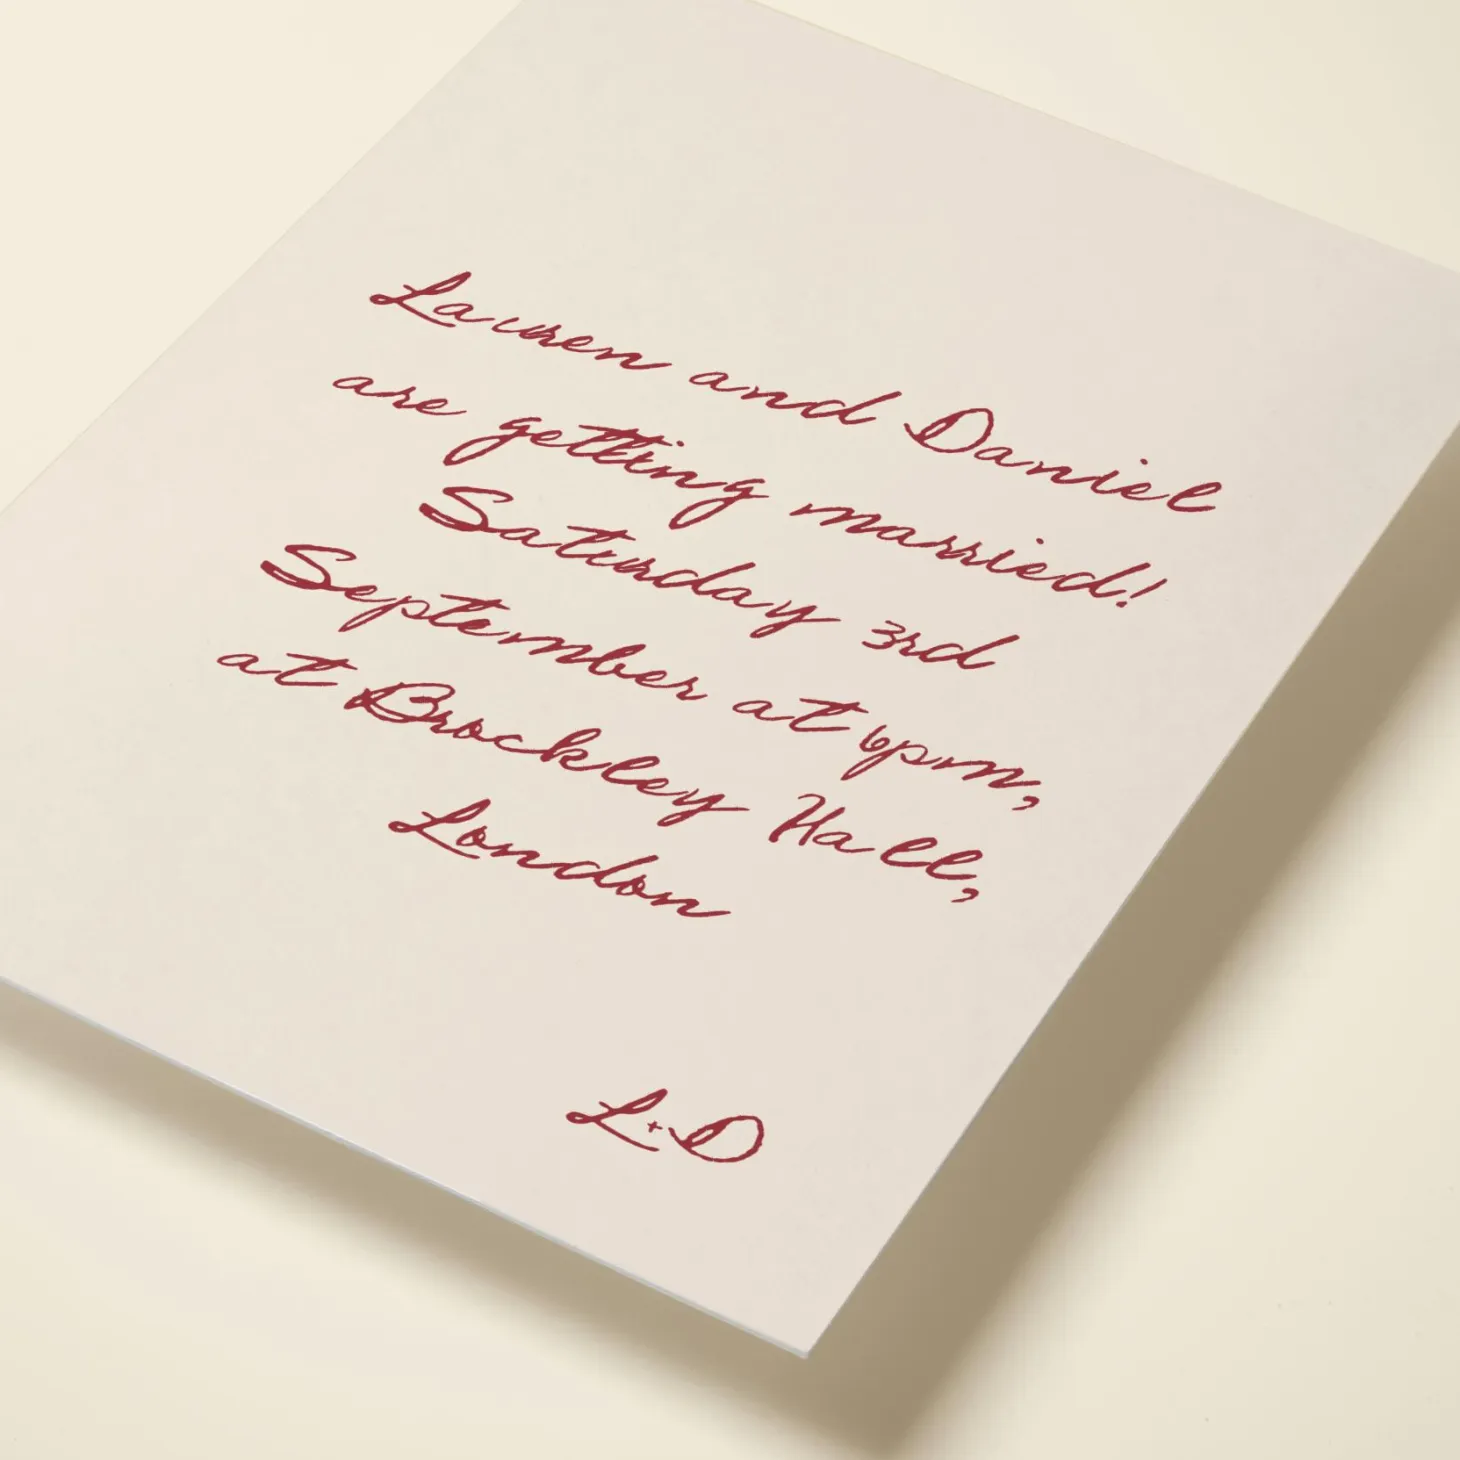 Lauren and Daniel
are getting married!
Saturday 3rd
September at 6pm,
at Brockley Hall,
London
L+D